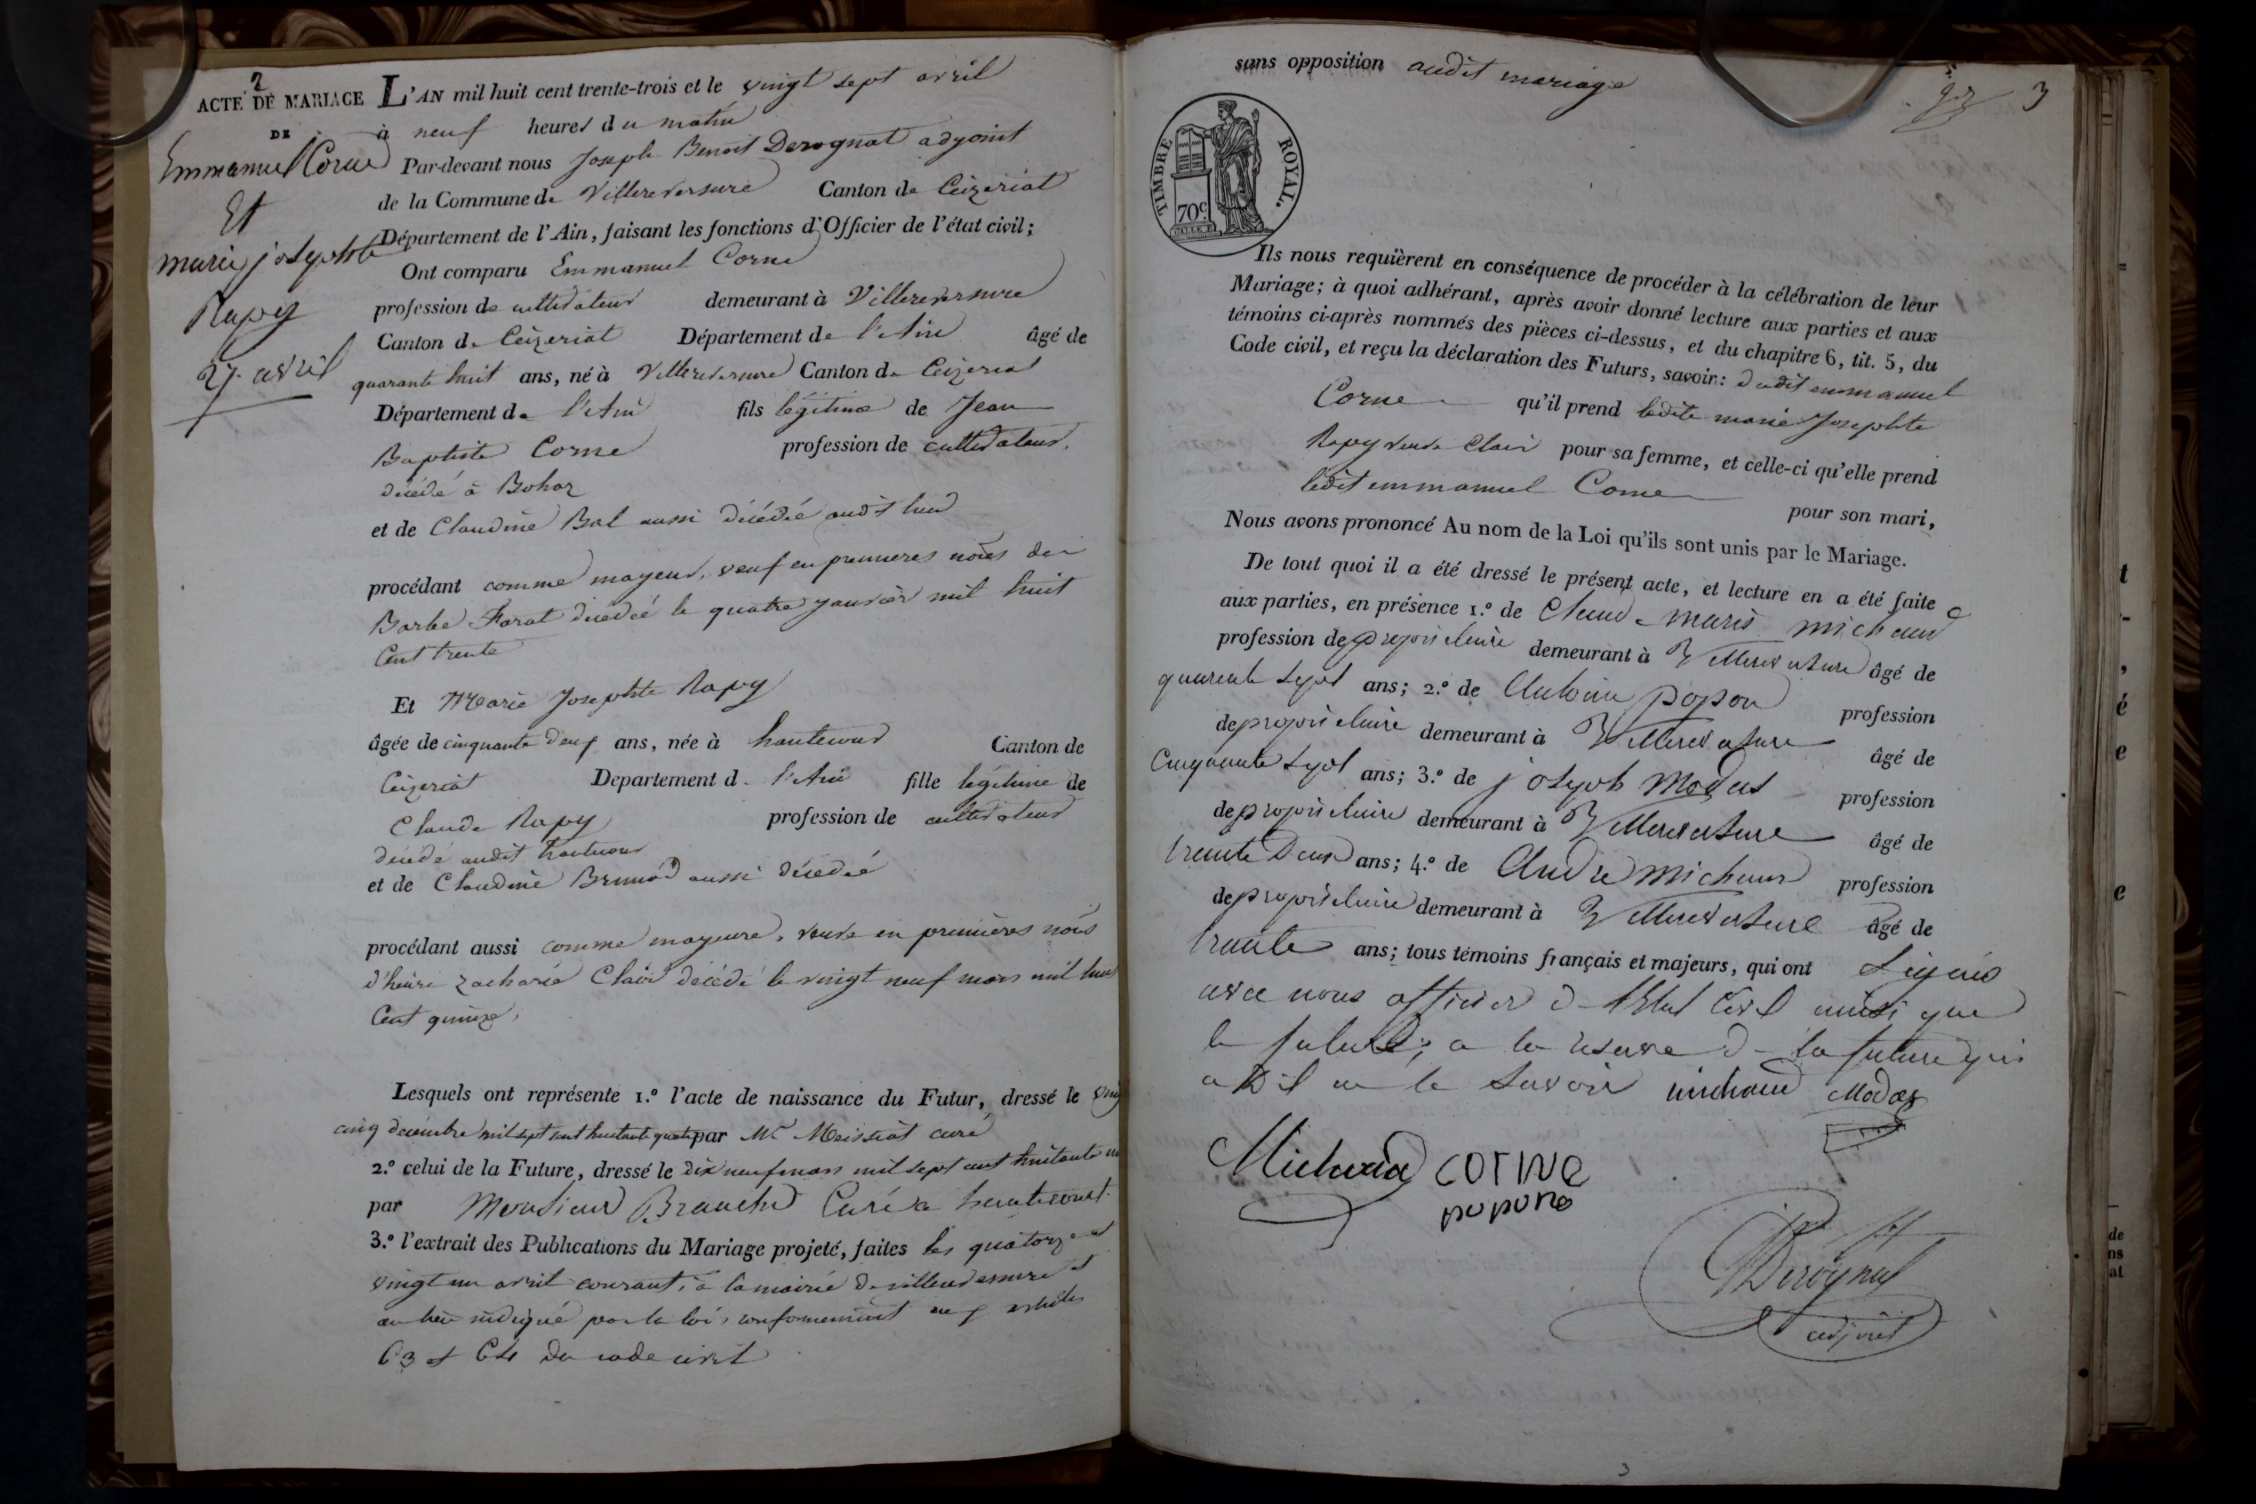 2
ACTE DE MARIAGE
DE
Emmanuel Corne
Et
marie josephte
Rapy
27 avril
L'AN mil huit cent trente-trois et le vingt sept avril
à neuf heures du matin
Par-devant nous Joseph Benoit Derognat adjoint
de la Commune de Villereversure Canton de Ceizeriat
Département de l'Ain, faisant les fonctions d'Officier de l'état civil;
Ont comparu Emmanuel Corne
profession de cultivateur demeurant à Villereversure
Canton de Ceizeriat Département de l'Ain âgé de
quarante huit ans, né à Villereversure Canton de Ceizeriat
Département de l'Ain fils légitime de Jean
Baptiste Corne profession de cultivateur.
décédé à Bohaz
et de Claudine Bal aussi décédée audit lieu
procédant comme majeur, veuf en premieres noces de
Barbe Farat décédée le quatre janvier mil huit
Cent trente
Et Marie Josephte Rapy
âgée de cinquante deux ans, née à hautecour Canton de
Ceizeriat Departement d. l'Ain fille légitime de
Claude Rapy profession de cultivateur
décédé audit hautecour
et de Claudine Brunod aussi décédée
procédant aussi comme majeure, veuve en premières noces
d'heure zacharie Clair décédé le vingt neuf mars mil huit
Cent quinze,
Lesquels ont représente 1.º l'acte de naissance du Futur, dressé le vingt
cinq decembre mil sept cent huitante quatre par Mr Meissiat curé
2.º celui de la Future, dressé le dix neuf mars mil sept cent huitante un
par Monsieur Branche Curé a hautecourt.
3.º l'extrait des Publications du Mariage projeté, faites les quatorze et
vingt un avril courant, à la mairie de villereversure et
au lieu indiqué par la loi, conformement aux articles
63 et 64 du code civil
sans opposition audit mariage
3
TIMBRE ROYAL.
70c
Ils nous requièrent en conséquence de procéder à la célébration de leur
Mariage; à quoi adhérant, après avoir donné lecture aux parties et aux
témoins ci-après nommés des pièces ci-dessus, et du chapitre 6, tit. 5, du
Code civil, et reçu la déclaration des Futurs, savoir: dudit emmanuel
Corne qu'il prend ladite marie Josephte
Rapy veuve Clair pour sa femme, et celle-ci qu'elle prend
ledit emmanuel Corne pour son mari,
Nous avons prononcé Au nom de la Loi qu'ils sont unis par le Mariage.
De tout quoi il a été dressé le présent acte, et lecture en a été faite
aux parties, en présence 1.º de Claude marie michaud
profession de propriétaire demeurant à Villereversure âgé de
quarente sept ans; 2.º de Antoine popon profession
de propriétaire demeurant à Villereversure âgé de
Cinquante sept ans; 3.º de joseph Modas profession
de propriétaire demeurant à Villereversure âgé de
trente Deux ans; 4.º de André michaud profession
de propriétaire demeurant à Villereversure âgé de
trente ans; tous témoins français et majeurs, qui ont signés
avec nous officier de l'Etat Civil ainsi que
le futur, a la reserve de la future qui
a dit ne le savoir michaud Modas
Michaud corne
popone
Derognat
adjoint
3